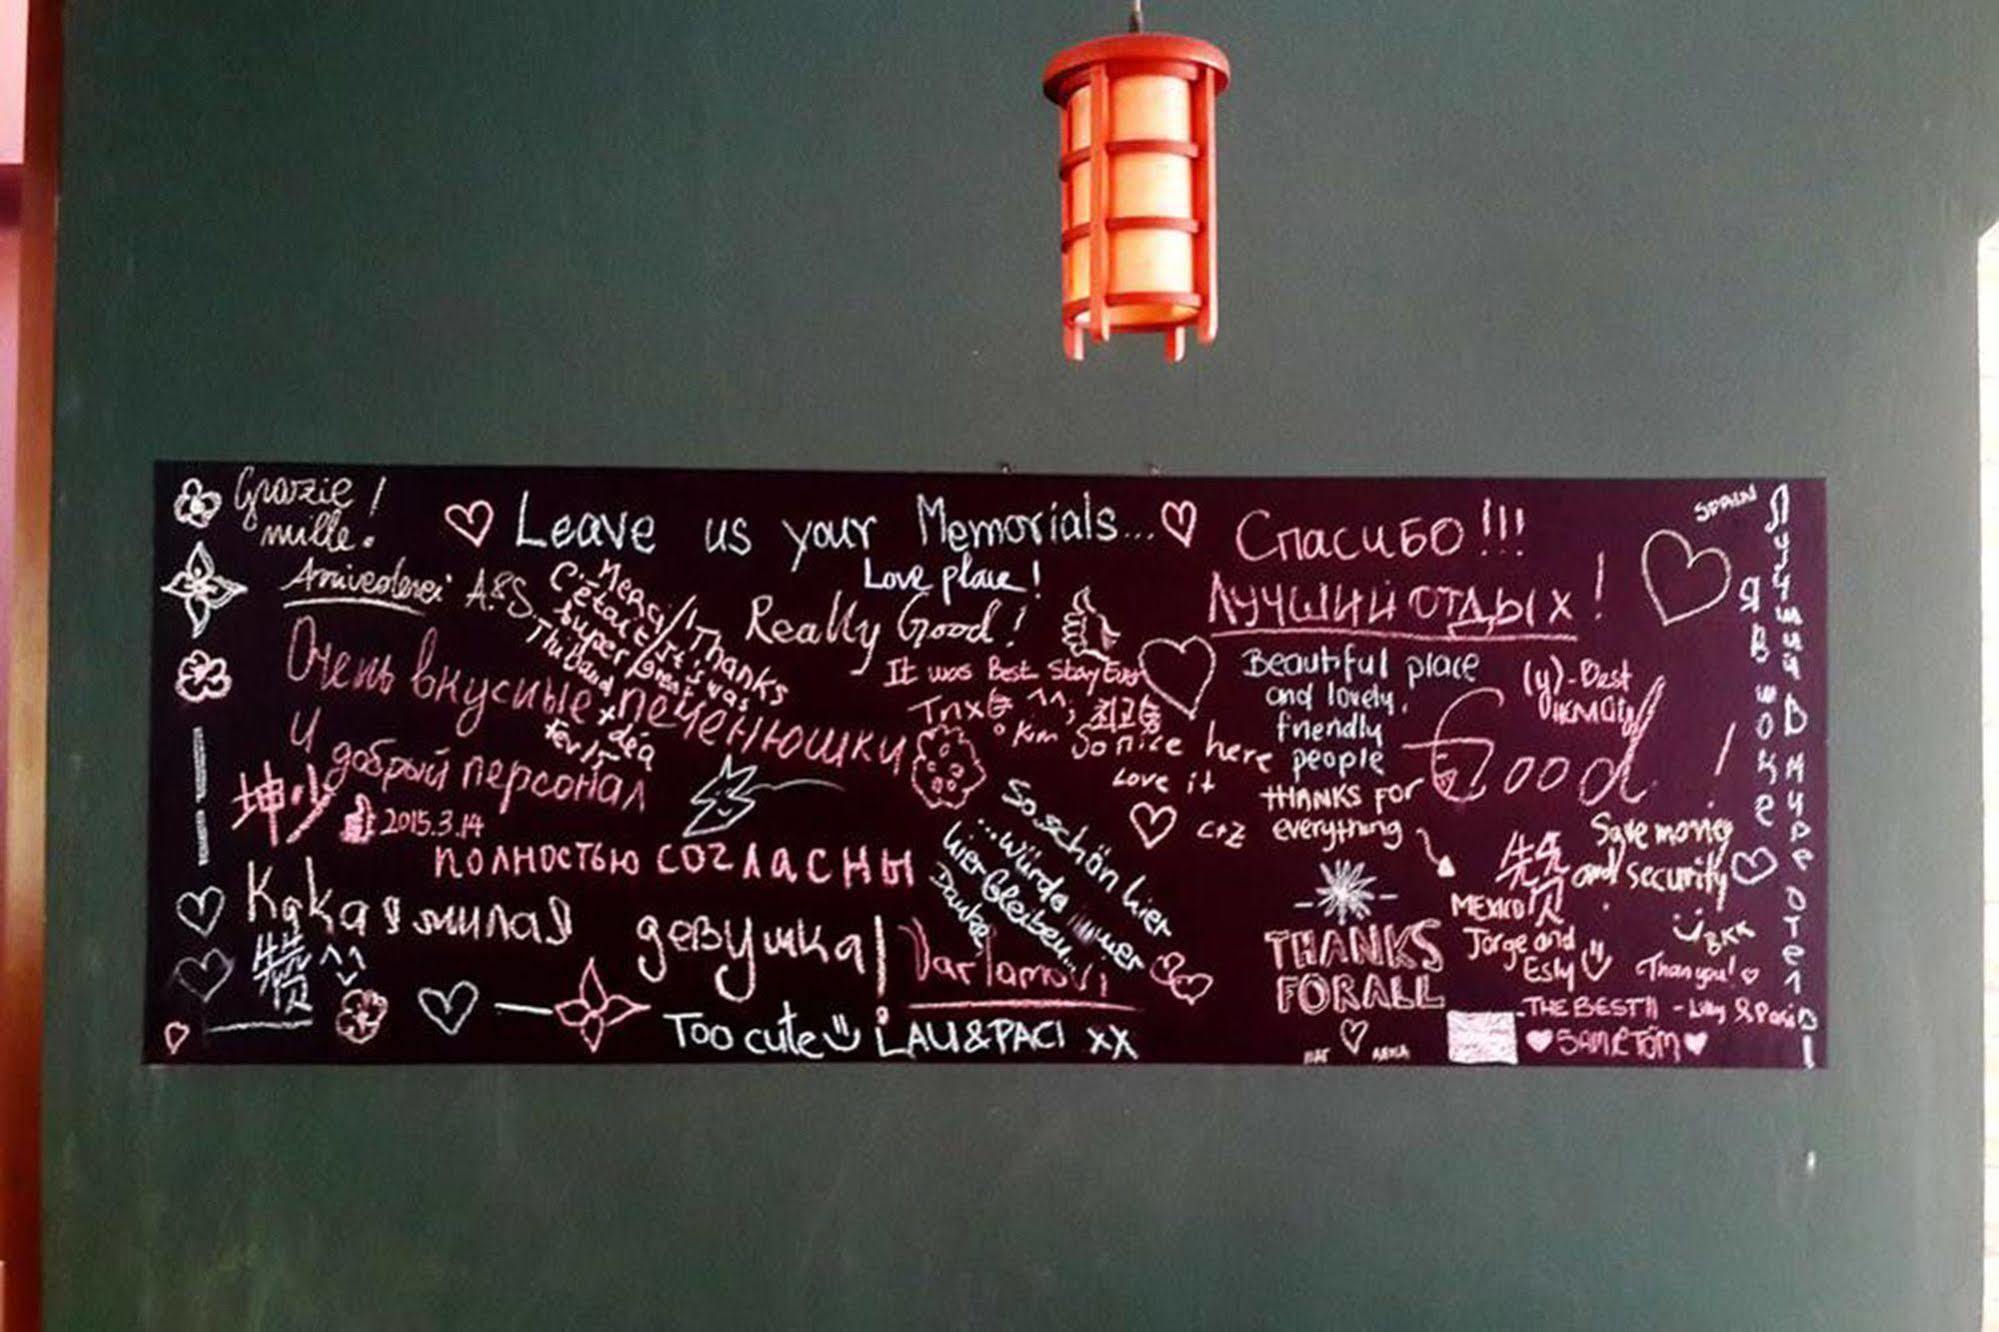 Grazie !
mille.
Arrivederci A&S.
Leave us your Memorials...
Love place!
Really Good!
Merci!
C'était
super
Thanks
It's was
Great
Очень вкусные печенюшки
и добрый персонал
2015.3.14
полностью согласны
Какая милая девушка!
Too cute
LAU&PACI xx
It was Best Stay Ever
Tnx ^^; 최고
Kim
So nice here
Love it
C+Z
So schön hier
...würde immer
hier bleiben...
Danke
Varlamovi
Спасибо!!!
ЛУЧШИЙ ОТДЫХ!
Beautiful place
and lovely,
friendly
people
THANKS FOR
everything
THANKS
FOR ALL
(y)-Best
Good!
Save money
and security
BKK
Thank you!
MEXICO
Jorge and
Esly
THE BEST!! - Lilly & Paci
SAM & TOM
SPAIN
Лучший в мире отель!
Я в шоке